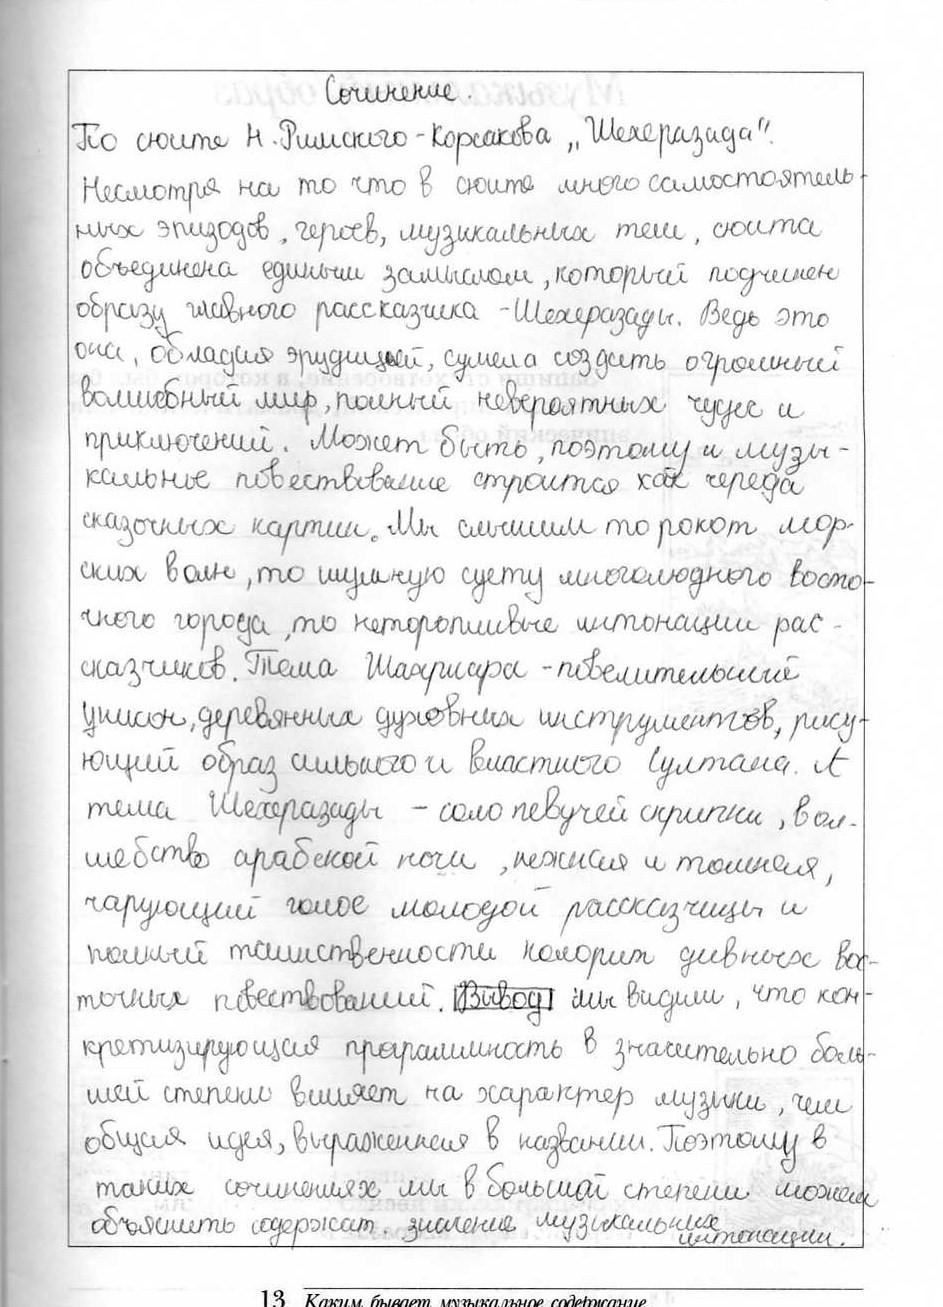 Сочинение.
По сюите Н. Римского-Корсакова „Шехеразада".
Несмотря на то что в сюите много самостоятель-
ных эпизодов, героев, музыкальных тем, сюита
объединена единым замыслом, который подчинен
образу главного рассказчика - Шехеразады. Ведь это
она, обладая эрудицией, сумела создать огромный
волшебный мир, полный невероятных чудес и
приключений. Может быть, поэтому и музы-
кальное повествование строится как череда
сказочных картин. Мы слышим то рокот мор-
ских волн, то шумную суету многолюдного восто-
чного города, то неторопливые интонации рас-
сказчиков. Тема Шахриара - повелительный
унисон, деревянных духовных инструментов, рису-
ющий образ сильного и властного Султана. А
тема Шехеразады - соло певучей скрипки, вол-
шебство арабской ночи, нежная и томная,
чарующий голос молодой рассказчицы и
полный таинственности колорит дивных вос-
точных повествований. Вывод мы видим, что кон-
кретизирующая программность в значительно боль-
шей степени влияет на характер музыки, чем
общая идея, выраженная в названии. Поэтому в
таких сочинениях мы в большой степени можем
объяснить содержат. значение музыкальных
интонации.
13 Каким бывает музыкальное содержание